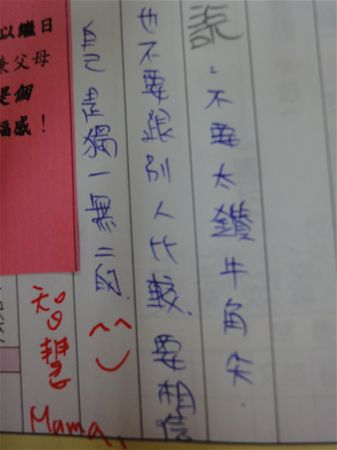 說。不要太鑽牛角尖
也不要跟別人比較,要相信
自己是獨一無二的.
智慧
Mama,
以繼日
兼父母
是個
福感！